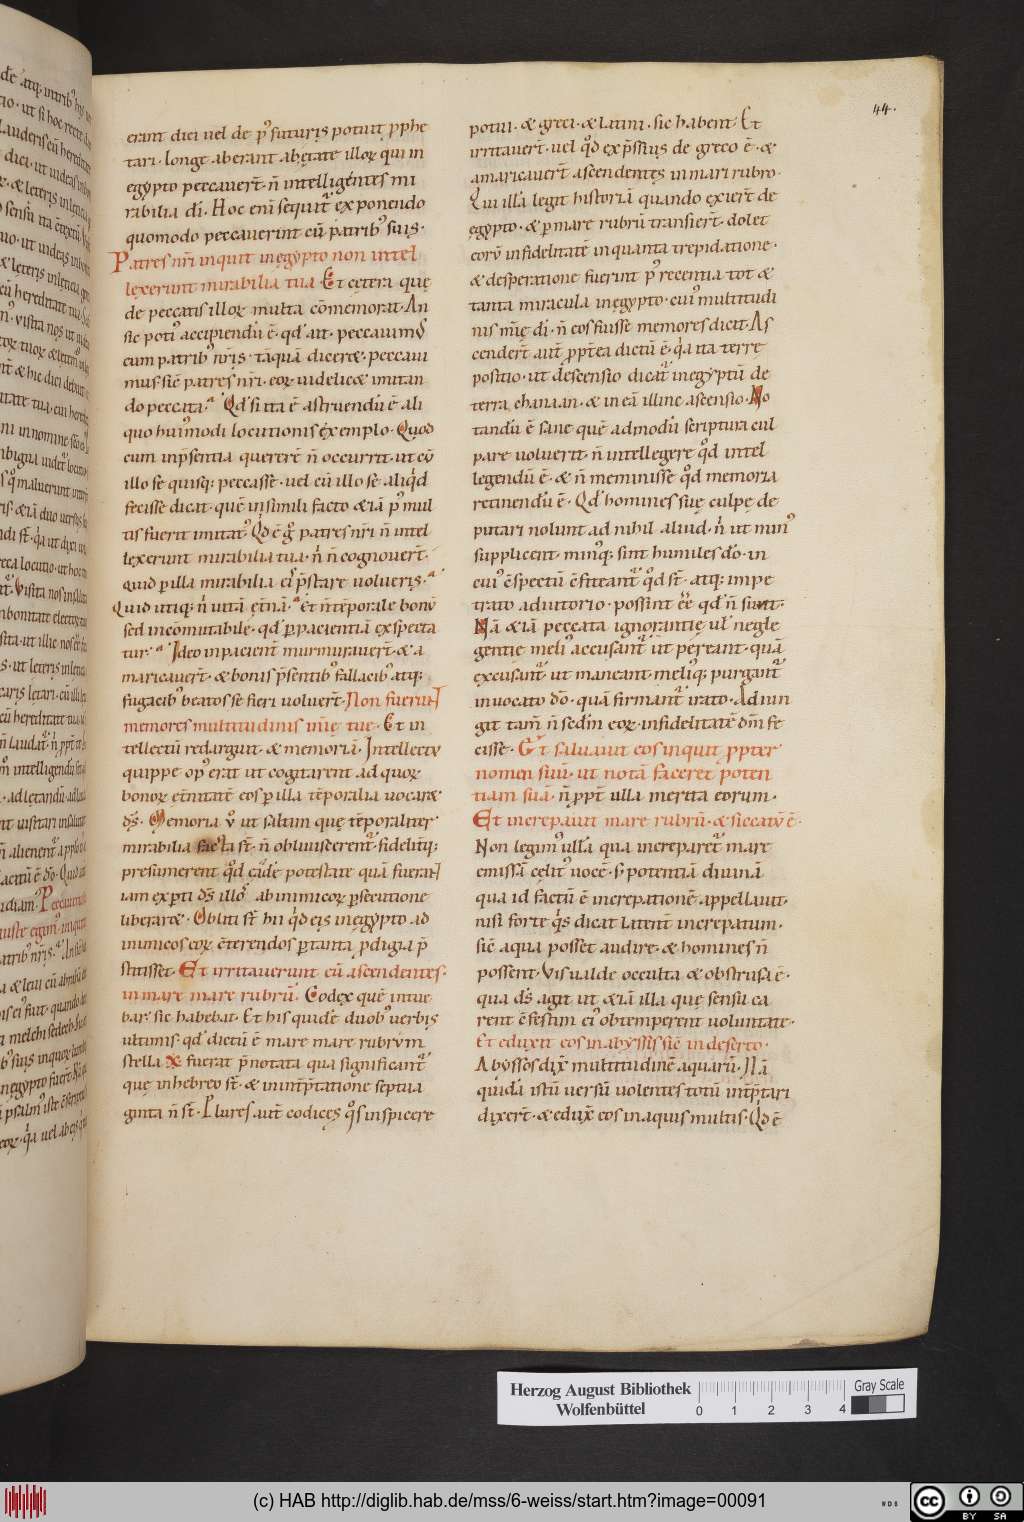 44.
erant dici uel de p̄ futuris potuit p̱phe
tari · longe aberant ab ętate illoꝝ qui in
egypto peccauer̄t · n̄ intelligentes mi
rabilia dī. Hoc eni̅ sequit᷑ exponendo
quomodo peccauerint cū patribꝰ suis ·
Patres nr̄i inquit in ęgypto non intel
lexerunt mirabilia tua Et cętera quę
de peccatis illoꝝ multa cōmemorat · An
sic potiꝰ accipiendū ē · qd̓ ait · peccauimꝰ
cum patribꝰ nr̄is · tāquā diceret · peccaui
mus sic̄ patres nr̄i · eoꝝ uidelicet imitan
do peccata · Qd̓ si ita ē astruendū ē ali
quo huiꝰmodi locutionis exemplo · Quod
cum in p̄sentia quererē n̄ occurrit · ut cū
illo se quisq; peccasse · uel cū illo se aliqͥd
fecisse dicat · quē in simili facto &iā pꝰ mul
tis fuerit imitatꝰ · Qd̓ ē gͦ patres nr̄i n̄ intel
lexerunt mirabilia tua · nͥ n̄ cognouer̄t ·
quid p̱ illa mirabilia eiꝰ p̄stare uolueris ·
Quid utiq; nͥ uitā et̄nā · Et n̄ tēporale bonū
sed incōmutabile · qd̓ p̱ pacientiā exspecta
tur · Ideo inpacient̄ murmurauer̄t · & a
maricauer̄t · & bonis p̄sentibꝰ fallacibꝰ atq;
fugacibꝰ beatos se fieri uoluer̄t · Non fuerunt
memores multitudinis mīę tuę · Et in
tellectū redarguit · & memoriā · Intellectu
quippe opꝰ erat ut cogitarent ad quoꝝ
bonoꝝ et̄nitatē eos p̱ illa tēporalia uocaret
ds̄ · Memoria ū ut saltim quę tēporaliter
mirabilia facta st̄ · n̄ obliuiscerent᷑ · fidelit̄q;
presumerent qd̓ eadē potestate qua fuerant
iam exp̱ti ds̄ illoſ ab inimicoꝝ p̱secutione
liberaret · Obliti st̄ hii qͥd eis in ęgypto ad
inimicos eoꝝ c̄terendos p̱ tanta p̱digia p̄
stitisset · Et irritauerunt cū ascendentes ·
in mare mare rubrū · Codex quē intue
bar sic habebat · Et his quidē duobꝰ uerbis
ultimis · qd̓ dictū ē mare mare rubrum
stella fuerat p̄notata qua significant᷑
quę in hebreo st̄ · & in int̄p̄tatione septua
ginta n̄ st̄ · Plures aut̄ codices qͦs inspicere
potui · & greci · & latini · sic habent · Et
irritauer̄t · uel qd̓ exp̄ssius de greco ē · &
amaricauer̄t ascendentes in mari rubro ·
Qui illā legit historiā quando exier̄t de
ęgypto · & p̱ mare rubrū transier̄t · dolet
eorū infidelitatē in quanta trepidatione ·
& desperatione fuerint pꝰ recentia tot &
tanta miracula in ęgypto · cuiꝰ multitudi
nis mīę dī · n̄ eos fuisse memores dicit · As
cender̄t aut̄ p̱pt̄ea dictū ē · qͥa ita terrę
positio · ut descensio dicat᷑ in egyptū de
terra chanaan · & in eā illinc ascensio · No
tandū ē sane quē admodū scriptura cul
pare uoluerit n̄ intellegere qd̓ intel
legendū ē · & n̄ meminisse qd̓ memoria
retinendū ē · Qd̓ homines suę culpę de
putari nolunt ad nihil aliud · nͥ ut minꝰ
supplicent minꝰq; sint humiles dō · in
cuiꝰ c̄spectu c̄fiteant᷑ qd̓ st̄ · atq; impe
trato adiutorio · possint eē qd̓ n̄ sunt ·
Nā &iā peccata ignorantię uł negle
gentię meliꝰ accusant᷑ ut pereant · quā
excusant᷑ ut maneant · meliꝰq; purgant᷑
inuocato dō · quā firmant᷑ irato · Adiun
git tam̄ n̄ sedm̄ eoꝝ infidelitatē dm̄ fe
cisse · Et saluauit eos inquit p̱pter
nomen suū · ut notā faceret poten
tiam suā · n̄ p̱pt̄ ulla merita eorum ·
Et increpauit mare rubrū · & siccatū ē ·
Non legimꝰ ullā qua increparet᷑ mare
emissā celitꝰ uocē · s; potentiā diuinā
qua id factū ē increpationē appellauit ·
nisi forte qͥs dicat latent̄ increpatum ·
sic̄ aqua posset audire · & homines n̄
possent · Vis ualde occulta & obstrusa ē ·
qua ds̄ agit ut &iā illa quę sensu ca
rent c̄festim eiꝰ obtemperent uoluntate ·
Et eduxit eos in abyssis sic̄ in deserto ·
Abyssos dix̄ multitudinē aquarū · Nā
quidā istū uersū uolentes totū int̄p̄tari
dixer̄t · & edux̄ eos in aquis multis · Qd̓ ē
Herzog August Bibliothek
Wolfenbüttel
0 1 2 3 4
Gray Scale
(c) HAB http://diglib.hab.de/mss/6-weiss/start.htm?image=00091
cc BY SA